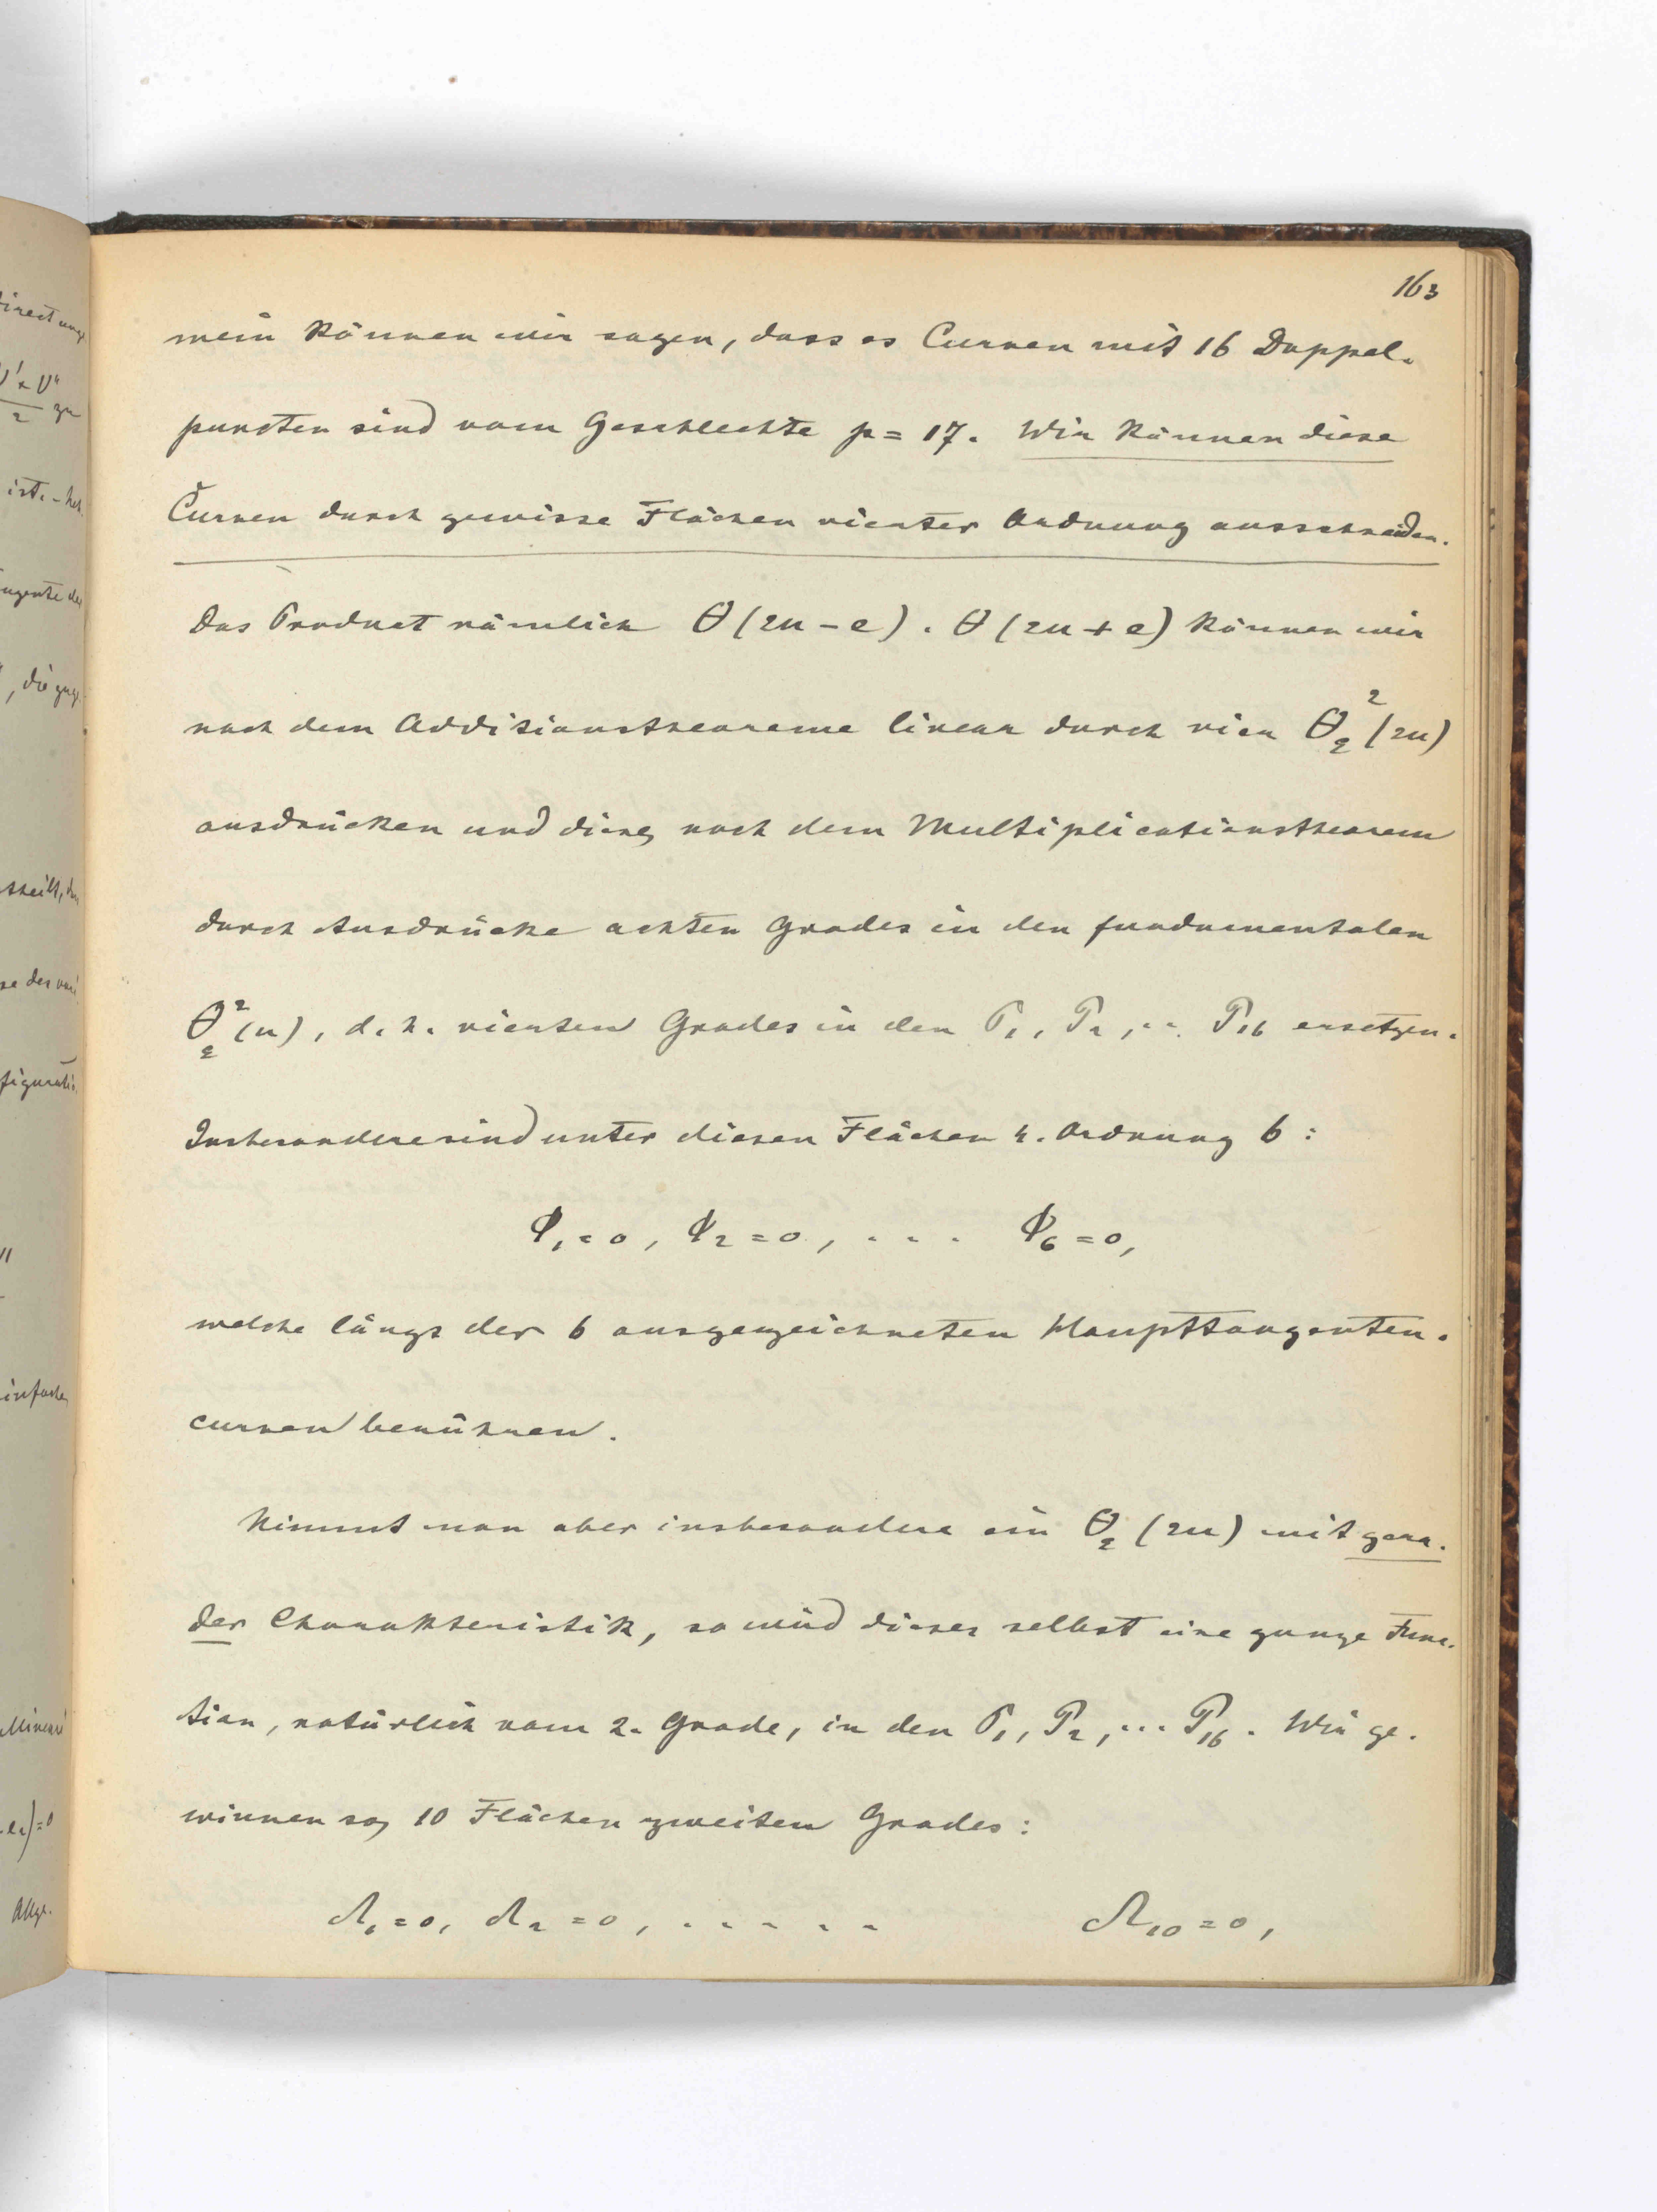 163
mein können wir sagen, dass es Curven mit 16 Doppel-
puncten sind vom Geschlechte p = 17. Wir können diese
Curven durch gewisse Flächen vierter Ordnung ausschneiden.
Das Product nämlich θ(2u-e) . θ(2u+e) können wir
nach dem Additionstheoreme linear durch vier θ₂²(2u)
ausdrücken und diese, nach dem Multiplicationstheorem
durch Ausdrücke achten Grades in den fundamentalen
θ₂²(u), d. h. vierten Grades in den P₁, P₂, ... P₁₆ ersetzen.
Insbesondere sind unter diesen Flächen 4. Ordnung 6:
Φ₁=0, Φ₂=0, .... Φ₆=0,
welche längs der 6 ausgezeichneten Haupttangenten-
curven berühren.
Nimmt man aber insbesondere ein θ₂(2u) mit gera-
der Charakteristik, so wird dieses selbst eine ganze Func-
tion, natürlich vom 2. Grade, in den P₁, P₂, ... P₁₆. Wir ge-
winnen so, 10 Flächen zweiten Grades:
Ω₁=0, Ω₂=0, ..... Ω₁₀=0,